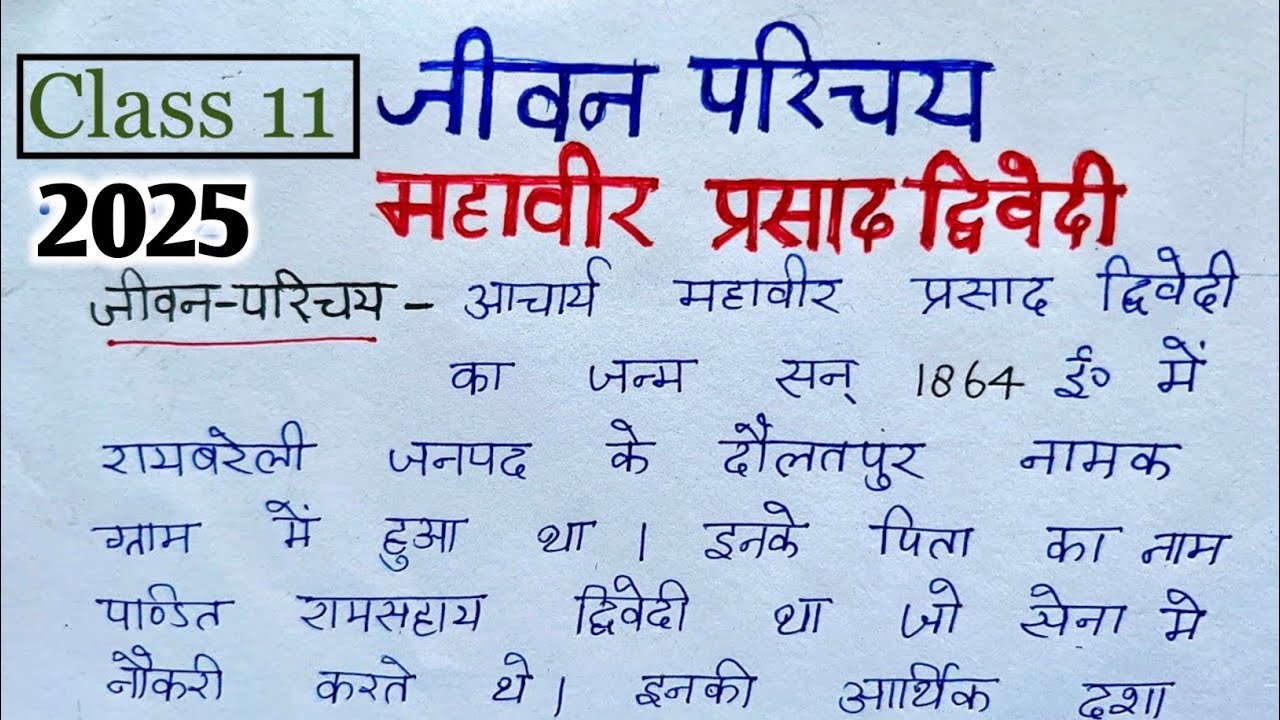 Class 11
जीवन परिचय
2025
महावीर प्रसाद द्विवेदी
जीवन-परिचय - आचार्य महावीर प्रसाद द्विवेदी
का जन्म सन् 1864 ई० में
रायबरेली जनपद के दौलतपुर नामक
ग्राम में हुआ था । इनके पिता का नाम
पण्डित रामसहाय द्विवेदी था जो सेना मे
नौकरी करते थे । इनकी आर्थिक दशा